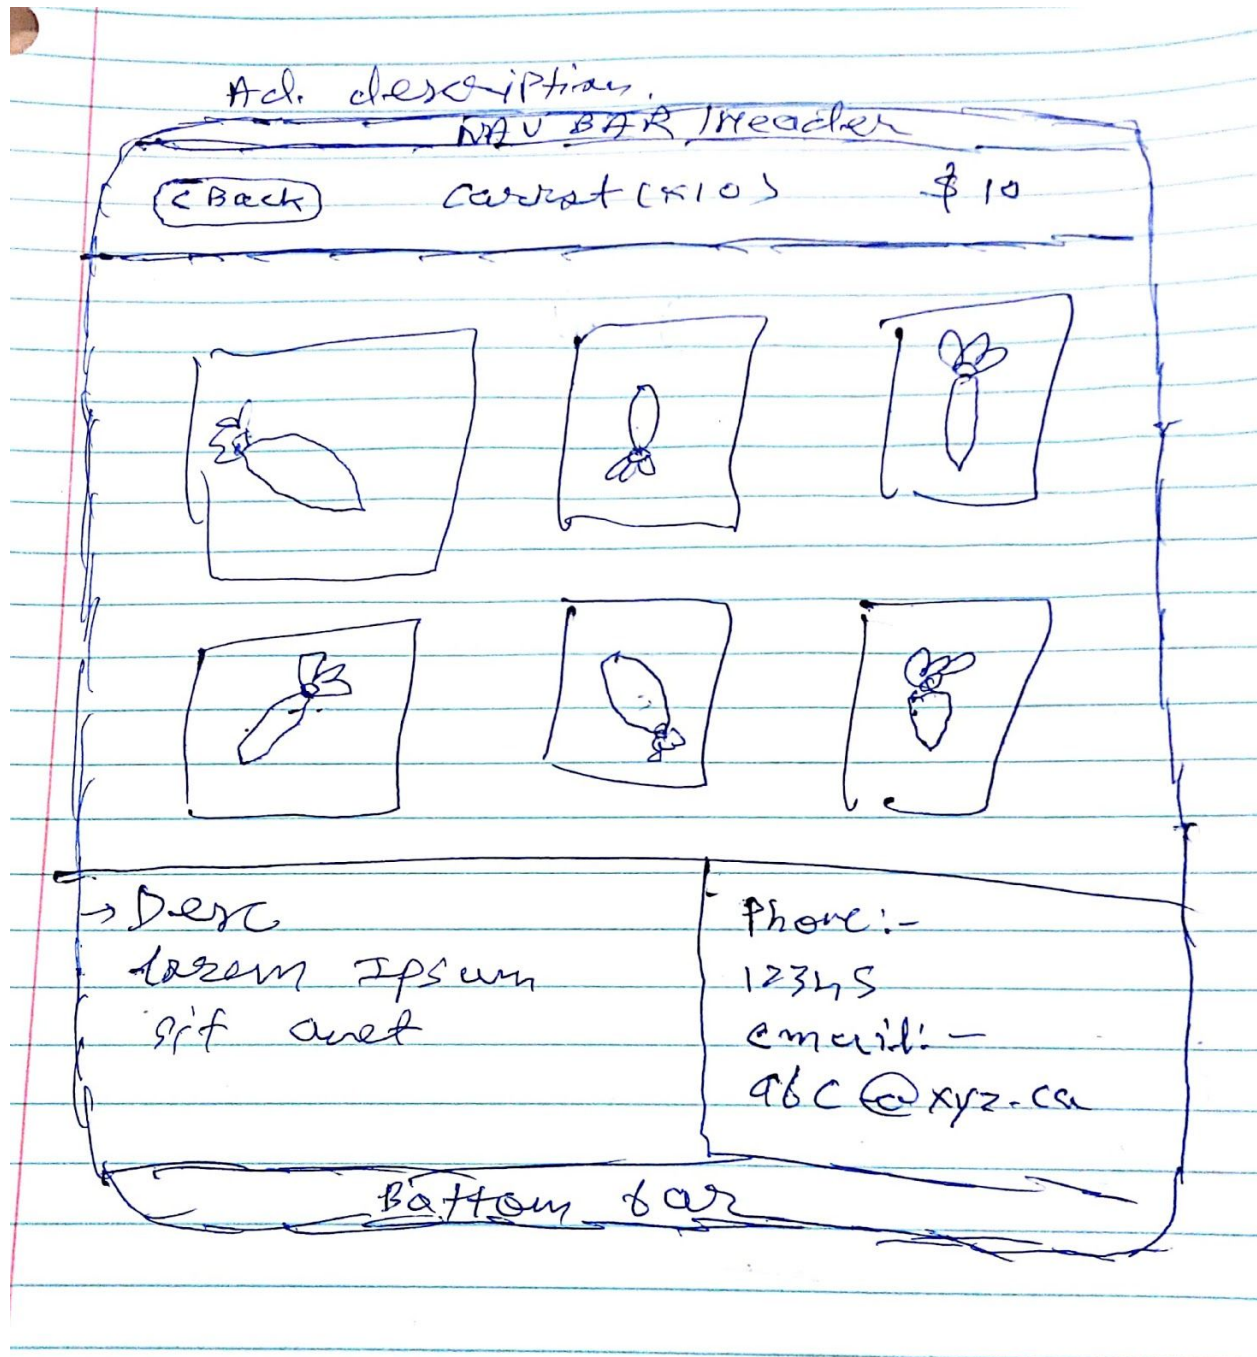 Ad. description.
NAV BAR / Header
< Back Carrot (x10) $ 10
→ Desc
lorem Ipsum
sit amet
Phone:-
12345
email:-
abc@xyz.ca
Bottom bar